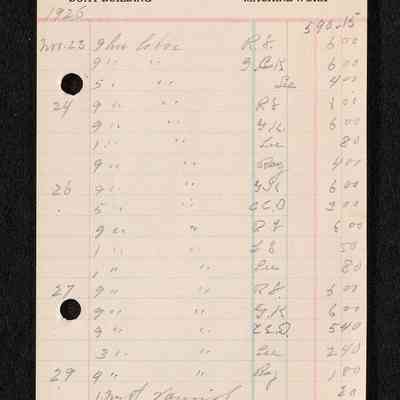 BOAT BUILDING MACHINE WORK
1926.
590.15
Nov. 23 9 hrs labor R.F. 6 00
9 " " G.K 6 00
5 " " Lee 4 00
24 9 " " R.F.
9 " " G.K. 6 00
1 " " Lee 80
9 " " Ray 4 00
26 9 " " G.K 6 00
5 " " C.C.D
9 " " R.F 6 00
1 " " 50
1 " " Lee 80
27 9 " " R.F. 6 00
9 " " G.K. 6 00
9 " " C.C.D. 5 40
3 " " Lee 2 40
29 9 " " Ray
1 Varnish 20